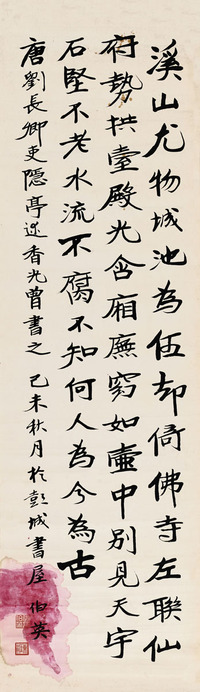 溪山尤物城池為伍却倚佛寺左聯仙
府勢拱臺殿光含廂廡窈如壺中別見天宇
石堅不老水流不腐不知何人為今為古
唐劉長卿吏隱亭述香光曾書之 己未秋月於彭城書屋 伯英